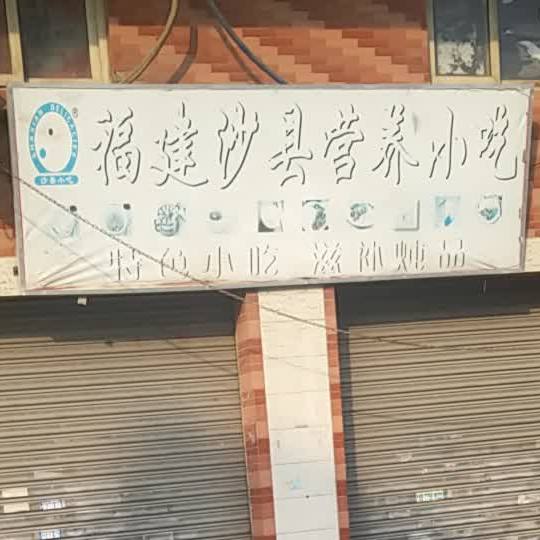 福建沙县营养小吃
SHAXIAN DELICACIES
®
沙县小吃
特色小吃 滋补炖品